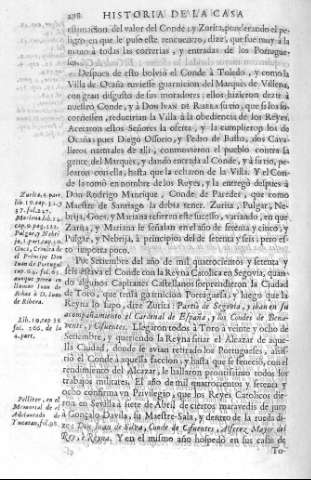 208 HISTORIA DE LA CASA
timacion del valor del Conde, y Zurita, ponderando el pe-
ligro en que le puso este rencuentro, dize, que fue muy a la
mano à todas las correrias, y entradas de los Portugue-
ses.
Despues de esto bolviò el Conde à Toledo, y como la
Villa de Ocaña tuviesse guarnicion del Marquès de Villena,
con gran disgusto de sus moradores; ellos hizieron dezir à
nuestro Conde, y à DON IVAN DE RIBERA su tio, que si los so-
corriessen, reducirian la Villa à la obediencia de los Reyes.
Acetaron estos Señores la oferta, y la cumplieron los de
Ocaña; pues Diego Ossorio, y Pedro de Busto, dos Cava-
lleros naturales de alli, conmovieron el pueblo contra la
gente del Marquès, y dando entrada al Conde, y à su tio, pe-
learon con ella, hasta que la echaron de la Villa. Y el Con-
de la tomò en nombre de los Reyes, y la entregò despues à
Don Rodrigo Manrique, Conde de Paredes, que como
Maestre de Santiago la debia tener. Zurita, Pulgar, Ne-
brija, Goes, y Mariana refieren este sucesso, variando, en que
Zurita, y Mariana le señalan en el año de setenta y cinco, y
Pulgar, y Nebrija, à principio del de setenta y seis; pero es-
to importa poco.
Por Setiembre del año de mil quatrocientos y setenta y
seis estava el Conde con la Reyna Catolica en Segovia, quan-
do algunos Capitanes Castellanos sorprendieron la Ciudad
de Toro, que tenia guarnicion Portuguesa, y luego que la
Reyna lo supo, dize Zurita: Partiò de Segovia, y iban en su
acompañamiento el Cardenal de España, y los Condes de Bena-
vente, y Cifuentes. Llegaron todos à Toro à veinte y ocho de
Setiembre, y queriendo la Reyna sitiar el Alcazar de aque-
lla Ciudad, donde se avian retirado los Portugueses, assis-
tiò el Conde à aquella faccion, y hasta que se feneciò, con el
rendimiento del Alcazar, le hallaron prontissimo todos los
trabajos militares. El año de mil quatrocientos y setenta y
ocho confirma vn Privilegio, que los Reyes Catolicos die-
ron en Sevilla à siete de Abril de ciertos maravedis de juro
à Gonçalo Davila, su Maestre-Sala, y dentro de la rueda di-
ze: Don Juan de Silva, Conde de Cifuentes, Alferez Mayor del
Rey, è Reyna. Y en el mismo año hospedò en sus casas de
To-
Zurita, 4. par.
lib. 19. cap.
Pulgar, y Nebri
ja
Goes, Cronica de
el Principe Don
Juan de Portugal
cap.
aunque pone en
Damian Juan de
Silva à D. Juan
de Ribera.
Lib. 19. cap
fol. 266. de la
4. part.
Pellicer, en el
Memorial de el
Adelantado de
Yucatan, fol. 98.